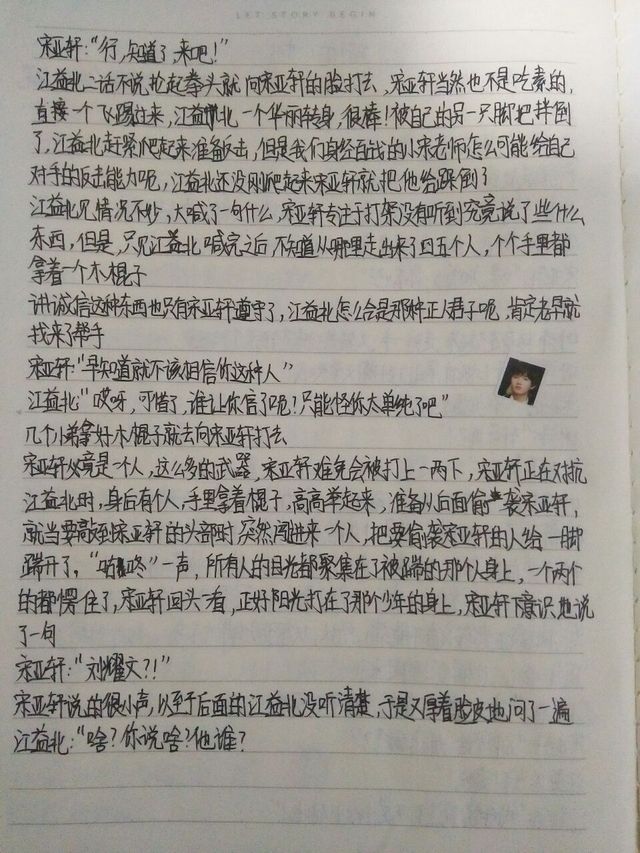 LET STORY BEGIN
宋亚轩:“行,知道了,来吧!”
江益北二话不说,抡起拳头就向宋亚轩的脸打去,宋亚轩当然也不是吃素的,
直接一个飞踢过来,江益北一个华丽转身,很棒!被自己的另一只脚把拌倒
了,江益北赶紧爬起来准备反击,但是我们身经百战的小宋老师怎么可能给自己
对手的反击能力呢,江益北还没刚爬起来宋亚轩就把他给踩倒了
江益北见情况不妙,大喊了一句什么,宋亚轩专注于打架没有听到究竟说了些什么
东西,但是,只见江益北喊完之后,不知道从哪里走出来了四五个人,个个手里都
拿着一个木棍子
讲诚信这种东西也只有宋亚轩遵守了,江益北怎么会是那种正人君子呢,肯定老早就
找来了帮手
宋亚轩:“早知道就不该相信你这种人”
江益北:“哎呀,可惜了,谁让你信了呢?只能怪你太单纯了吧”
几个小弟拿好木棍子就去向宋亚轩打去
宋亚轩必竟是一个人,这么多的武器,宋亚轩难免会被打上一两下,宋亚轩正在对抗
江益北时,身后有个人,手里拿着棍子,高高举起来,准备从后面偷袭宋亚轩,
就当要敲到宋亚轩的头部时,突然闯进来一个人,把要偷袭宋亚轩的人给一脚
踹开了,“咕咚”一声,所有人的目光都聚集在了被踹的那个人身上,一个两个
的都愣住了,宋亚轩回头一看,正好阳光打在了那个少年的身上,宋亚轩下意识地说
了一句
宋亚轩:“刘耀文?!”
宋亚轩说的很小声,以至于后面的江益北没听清楚,于是又厚着脸皮地问了一遍
江益北:“啥?你说啥?他谁?